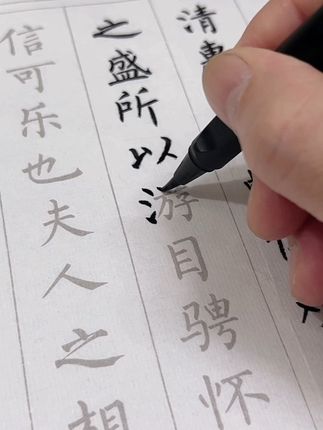 清惠
之盛所以游目骋怀
信可乐也夫人之